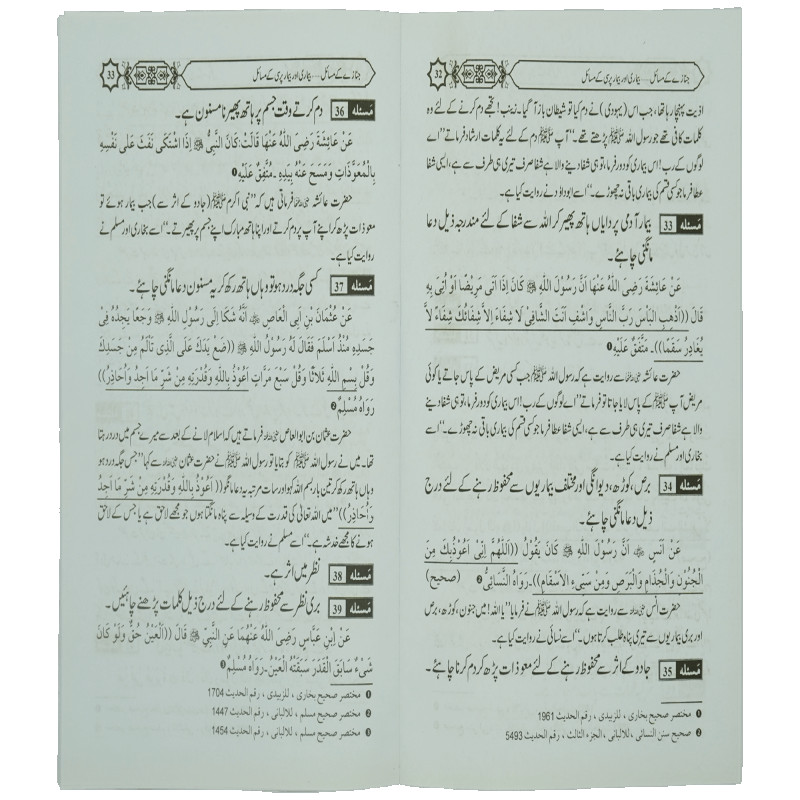 32
جنازے کے مسائل — بیماری اور بیمار پرسی کے مسائل
اذیت پہنچا رہا تھا، جب اس (یہودی) نے دم کیا تو شیطان باز آ گیا۔ زینب! تجھے دم کرنے کے لئے وہ
کلمات کافی تھے جو رسول اللہ ﷺ پڑھتے تھے۔‘‘ آپ ﷺ دم کے لئے یہ کلمات ارشاد فرماتے ’’اے
لوگوں کے رب! اس بیماری کو دور فرما، تو ہی شفا دینے والا ہے شفا صرف تیری ہی طرف سے ہے، ایسی شفا
عطا فرما جو کسی قسم کی بیماری باقی نہ چھوڑے۔‘‘ اسے ابوداؤد نے روایت کیا ہے۔
مَسئله 33 بیمار آدمی پر دایاں ہاتھ پھیر کر اللہ سے شفا کے لئے مندرجہ ذیل دعا
مانگنی چاہئے۔
عَنْ عَائِشَةَ رَضِىَ اللّٰهُ عَنْهَا اَنَّ رَسُوْلَ اللّٰهِ ﷺ كَانَ إِذَا اَتَى مَرِيْضًا اَوْ اُتِىَ بِهِ
قَالَ ((اَذْهِبِ الْبَاْسَ رَبَّ النَّاسِ وَاشْفِ اَنْتَ الشَّافِىْ لَا شِفَاءَ اِلاَّ شِفَائُكَ شِفَاءً لَا
يُغَادِرُ سَقَمًا))۔ مُتَّفَقٌ عَلَيْهِ ❶
حضرت عائشہ رضی اللہ عنہا سے روایت ہے کہ رسول اللہ ﷺ جب کسی مریض کے پاس جاتے یا کوئی
مریض آپ ﷺ کے پاس لایا جاتا تو فرماتے ’’اے لوگوں کے رب! اس بیماری کو دور فرما، تو ہی شفا دینے
والا ہے شفا صرف تیری ہی طرف سے ہے، ایسی شفا عطا فرما جو کسی قسم کی بیماری باقی نہ چھوڑے۔‘‘ اسے
بخاری اور مسلم نے روایت کیا ہے۔
مَسئله 34 برص، کوڑھ، دیوانگی اور مختلف بیماریوں سے محفوظ رہنے کے لئے درج
ذیل دعا مانگنی چاہئے۔
عَنْ اَنَسٍ ﷜ اَنَّ رَسُوْلَ اللّٰهِ ﷺ كَانَ يَقُوْلُ ((اَللّٰهُمَّ اِنِّىْ اَعُوْذُبِكَ مِنَ
الْجُنُوْنِ وَالْجُذَامِ وَالْبَرَصِ وَمِنْ سَيِّىءِ الْاَسْقَامِ))۔ رَوَاهُ النَّسَائِىُّ ❷ (صحيح)
حضرت انس رضی اللہ عنہ سے روایت ہے کہ رسول اللہ ﷺ نے فرمایا ’’یا اللہ! میں جنون، کوڑھ، برص
اور بری بیماریوں سے تیری پناہ طلب کرتا ہوں۔‘‘ اسے نسائی نے روایت کیا ہے۔
مَسئله 35 جادو کے اثر سے محفوظ رہنے کے لئے معوذات پڑھ کر دم کرنا چاہئے۔
❶ مختصر صحيح بخارى ، للزبيدى ، رقم الحديث 1961
❷ صحيح سنن النسائى ، للالبانى ، الجزء الثالث ، رقم الحديث 5493
33
جنازے کے مسائل — بیماری اور بیمار پرسی کے مسائل
مَسئله 36 دم کرتے وقت جسم پر ہاتھ پھیرنا مسنون ہے۔
عَنْ عَائِشَةَ رَضِىَ اللّٰهُ عَنْهَا قَالَتْ: كَانَ النَّبِىُّ ﷺ اِذَا اشْتَكَى نَفَثَ عَلَى نَفْسِهِ
بِالْمُعَوِّذَاتِ وَمَسَحَ عَنْهُ بِيَدِهِ ۔ مُتَّفَقٌ عَلَيْهِ ❶
حضرت عائشہ رضی اللہ عنہا فرماتی ہیں کہ ’’نبی اکرم ﷺ (جادو کے اثر سے) جب بیمار ہوئے تو
معوذات پڑھ کر اپنے آپ پر دم کرتے اور اپنا ہاتھ مبارک اپنے جسم پر پھیرتے۔‘‘ اسے بخاری اور مسلم نے
روایت کیا ہے۔
مَسئله 37 کسی جگہ درد ہو تو وہاں ہاتھ رکھ کر یہ مسنون دعا مانگنی چاہئے۔
عَنْ عُثْمَانَ بْنِ اَبِى الْعَاصِ ﷜ اَنَّهُ شَكَا اِلَى رَسُوْلِ اللّٰهِ ﷺ وَجَعًا يَجِدُهُ فِىْ
جَسَدِهِ مُنْذُ اَسْلَمَ فَقَالَ لَهُ رَسُوْلُ اللّٰهِ ﷺ ((ضَعْ يَدَكَ عَلَى الَّذِىْ تَاَلَّمَ مِنْ جَسَدِكَ
وَقُلْ بِسْمِ اللّٰهِ ثَلاَثًا وَقُلْ سَبْعَ مَرَّاتٍ اَعُوْذُ بِاللّٰهِ وَقُدْرَتِهِ مِنْ شَرِّ مَا اَجِدُ وَاُحَاذِرُ))
رَوَاهُ مُسْلِمٌ ❷
حضرت عثمان بن ابوالعاص رضی اللہ عنہ فرماتے ہیں کہ اسلام لانے کے بعد سے میرے جسم میں درد رہتا
تھا۔ میں نے رسول اللہ ﷺ کو بتایا تو رسول اللہ ﷺ نے حضرت عثمان رضی اللہ عنہ سے کہا ’’جس جگہ درد ہو
وہاں ہاتھ رکھ کر تین بار بسم اللہ کہو اور سات مرتبہ یہ دعا مانگو ((اَعُوْذُ بِاللّٰهِ وَقُدْرَتِهِ مِنْ شَرِّ مَا اَجِدُ
وَاُحَاذِرُ)) ’’میں اللہ تعالیٰ کی قدرت کے وسیلہ سے پناہ مانگتا ہوں جو مجھے لاحق ہے یا جس کے لاحق
ہونے کا مجھے خدشہ ہے۔‘‘ اسے مسلم نے روایت کیا ہے۔
مَسئله 38 نظر میں اثر ہے۔
مَسئله 39 بری نظر سے محفوظ رہنے کے لئے درج ذیل کلمات پڑھنے چاہئیں۔
عَنْ اِبْنِ عَبَّاسٍ رَضِىَ اللّٰهُ عَنْهُمَا عَنِ النَّبِىِّ ﷺ قَالَ ((اَلْعَيْنُ حَقٌّ وَلَوْ كَانَ
شَىْءٌ سَابَقَ الْقَدَرَ سَبَقَتْهُ الْعَيْنُ۔ رَوَاهُ مُسْلِمٌ ❸
❶ مختصر صحيح بخارى ، للزبيدى ، رقم الحديث 1704
❷ مختصر صحيح مسلم ، للالبانى ، رقم الحديث 1447
❸ مختصر صحيح مسلم ، للالبانى ، رقم الحديث 1454